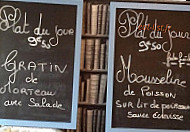 Plat du jour
9€50
GRATIN
de
MORTEAU
avec Salade
Plat du jour
9€50
Mousseline
de Poisson
SUR LIT de poireaux
sauce